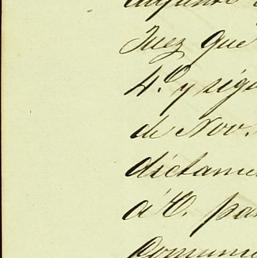 Juez que
4.º y sig
de Nov.
dictame
á V. pa
Comuni